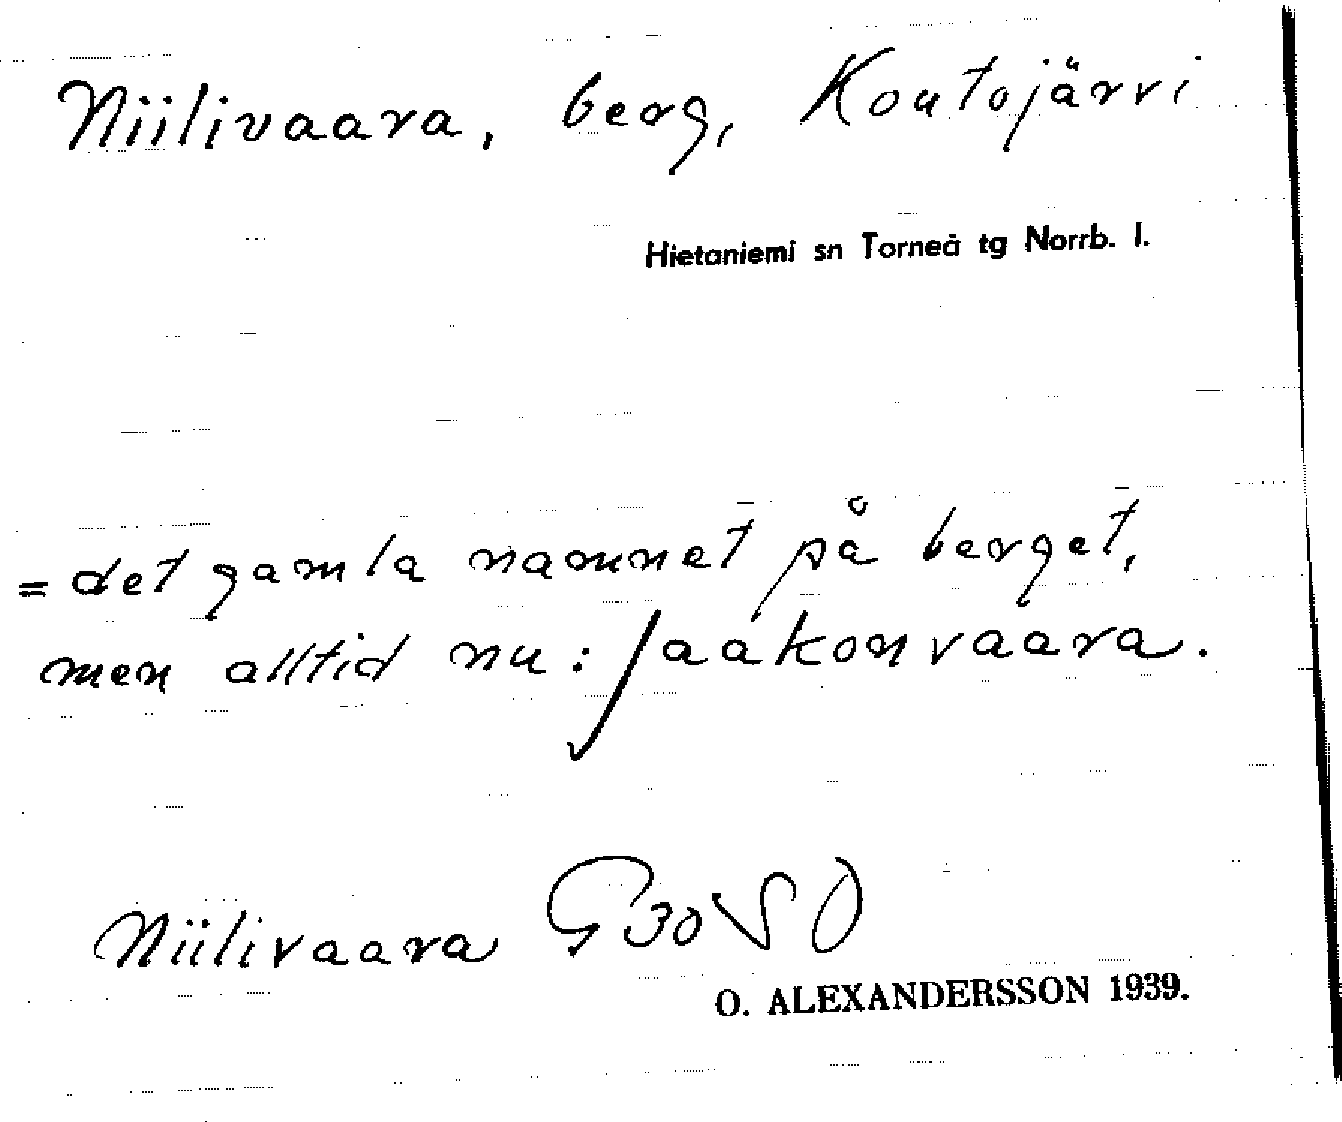 Niilivaara, berg, Koutojärvi
Hietaniemi sn Torneå tg Norrb. l.
= det gamla namnet på berget,
men alltid nu: Jaakonvaara.
Niilivaara G 30 SO
O. ALEXANDERSSON 1939.